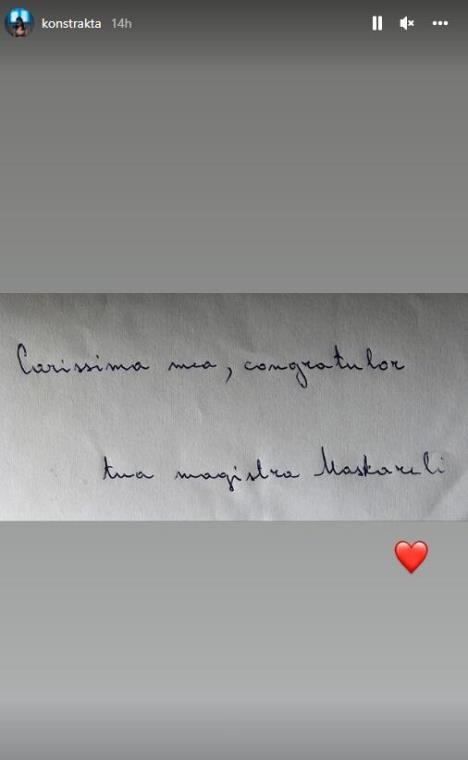 konstrakta 14h
Carissima mea, congratulor
tua magistra Maskareli